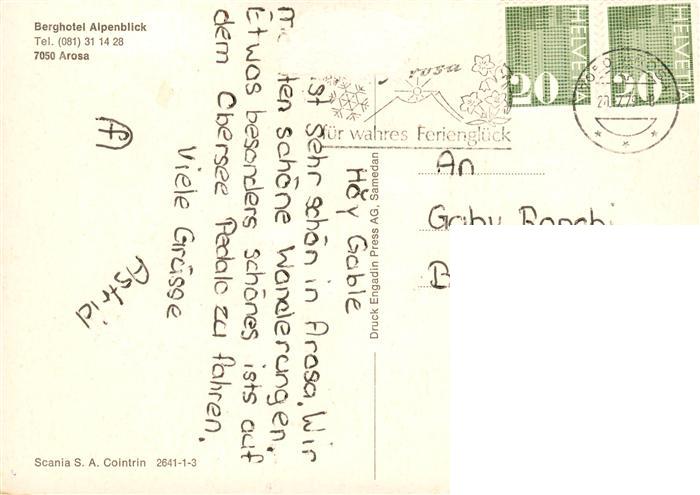 Berghotel Alpenblick
Tel. (081) 31 14 28
7050 Arosa
HELVETIA
20
HELVETIA
20
für wahres Ferienglück
An
Gaby
Höy Gable
ist sehr schön in Arosa. Wir
schöne Wanderungen.
Etwas besonders schönes ists auf
dem Obersee Pedalo zu fahren.
Viele Grüsse
Astrid
Druck Engadin Press AG, Samedan
Scania S. A. Cointrin 2641-1-3